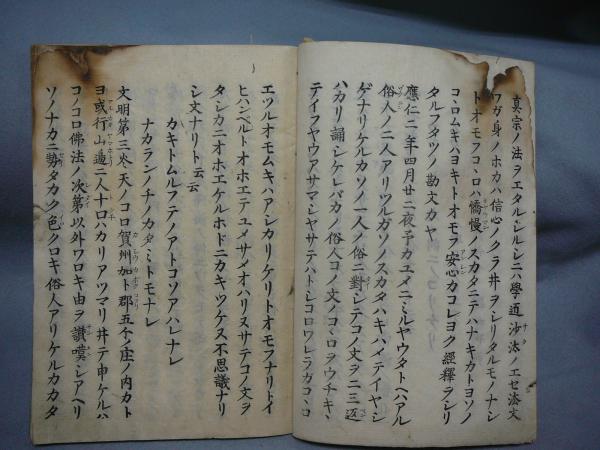 真宗ノ法ヲエタルシルシニハ學道沙汰ノエセ法文
ワガ身ノホカハ信心ノクラ井ヲシリタルモノナシ
トオモフコヽロハ憍慢ノスカタニテハナキカトヨソノ
コヽロムキハヨキトオモヲ安心カコレヨク經釋ヲシリ
タルフタツノ勘文カヤ
應仁二年四月廿二夜予カユメニミルヤウタトヘハアル
俗人ノ二人アリツルガソノスカタハキハメテイヤシ
ゲナリケルカソノ一人ノ俗ニ對シテコノ文ヲ二三返
ハカリ誦シケレバカノ俗人コノ文ノコヽロヲウチキヽ
テイフヤウアサマシヤサテハトシコロワレラガコヽロ
エツルオモムキハアシカリケリトオモフナリトイ
ヒハンベルトオホエテユメサメオハリヌサテコノ文ヲ
タシカニオホエケルホドニカキツケヌ不思議ナリ
シ文ナリト云云
カキトムルフテノアトコソアハレナレ
ナカランノチノカタミトモナレ
文明第三炎天ノコロ賀州加ト郡五ケノ庄ノ内カト
ヨ或行山邊ニ人十口ハカリアツマリ井テ申ケルハ
コノコロ佛法ノ次第以外ワロキ由ヲ讃嘆シアヘリ
ソノナカニ勢タカク色クロキ俗人アリケルカカタ